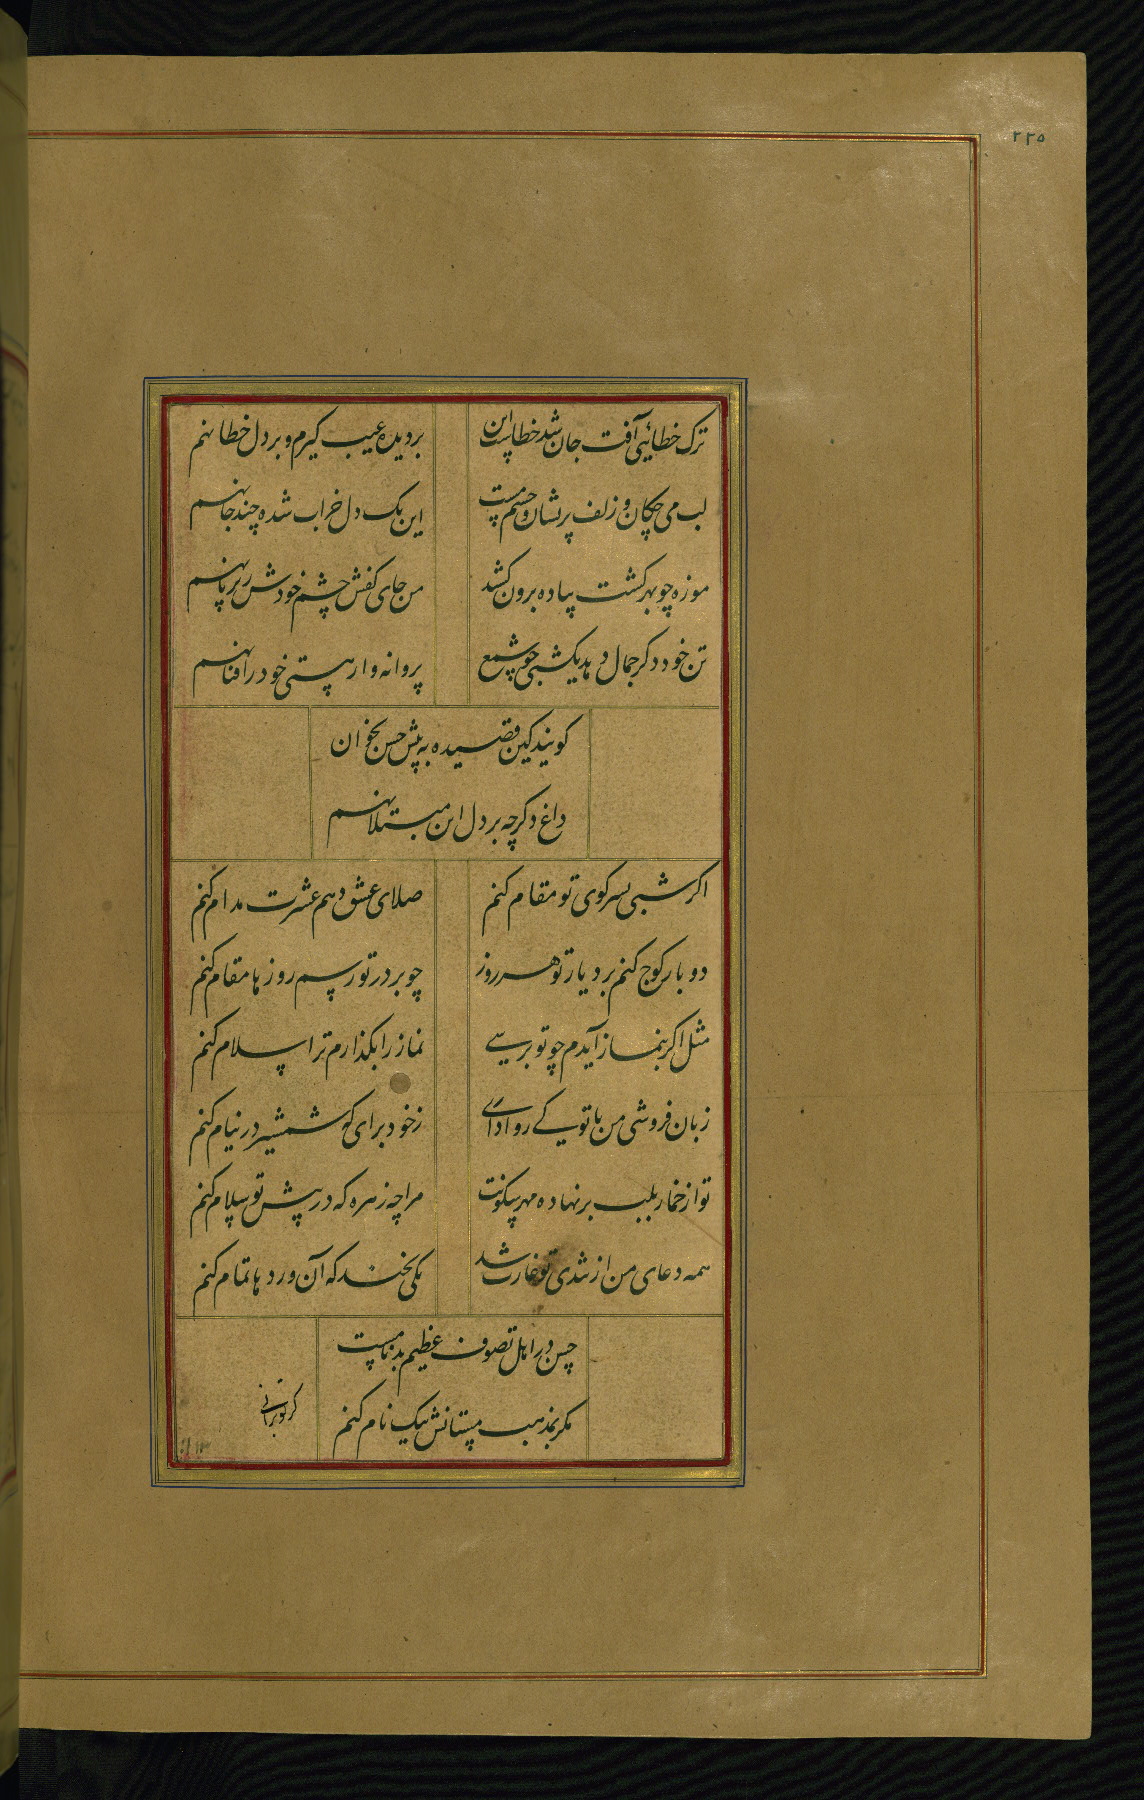 ۲۲۵
ترک خطائی آفت جان شد خطاست این بر دیده عیب کیرم و بر دل خطا نهم
لب می چکان و زلف پریشان و چشم مست این یک دل خراب شده چند جا نهم
موزه چو بهر کشت پیاده برون کشد من جای کفش چشم خودش زیر پا نهم
تن خود دکر جمال دهد یکشبی چو شمع پروانه وار هستی خود را فنا نهم
کویند کین قصیده به پیش حسن بخوان
داغ دکر چه بر دل این مبتلا نهم
اکر شبی بسر کوی تو مقام کنم صلای عشق دهم عشرت مدام کنم
دو بار کوج کنم بر دیار تو هر روز چو بر در تو رسم روزها مقام کنم
مثل اکر بنماز آیدم چو تو برسی نماز را بکذارم ترا سلام کنم
زبان فروشی من با تو کی روا داری ز خود برای که شمشیر در نیام کنم
تو از خمار بلب برنهاده مهر سکوت مرا چه زهره که در پیش تو سلام کنم
همه دعای من از شدی تو غارت شد بکی بخند که آن وردها تمام کنم
حسن در اهل تصوف عظیم بدنامست
مکر بمذهب مستانش نیک نام کنم
کر تو برانی